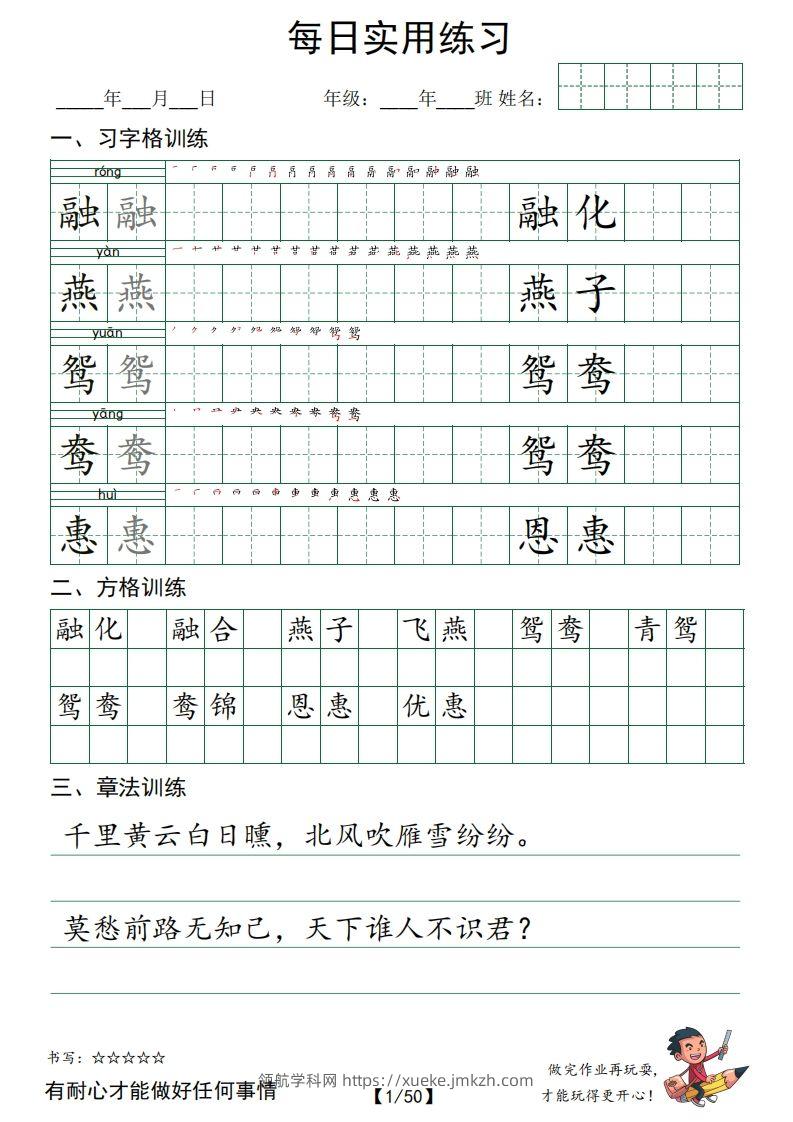 每日实用练习
_____年___月___日 年级：____年____班 姓名：
一、习字格训练
róng
融 融 融 化
yàn
燕 燕 燕 子
yuān
鸳 鸳 鸳 鸯
yāng
鸯 鸯 鸳 鸯
huì
惠 惠 恩 惠
二、方格训练
融 化 融 合 燕 子 飞 燕 鸳 鸯 青 鸳
鸳 鸯 鸯 锦 恩 惠 优 惠
三、章法训练
千里黄云白日曛，北风吹雁雪纷纷。
莫愁前路无知己，天下谁人不识君？
书写：☆☆☆☆☆
做完作业再玩耍，
才能玩得更开心！
有耐心才能做好任何事情
领航学科网 https://xueke.jmkzh.com
【1/50】